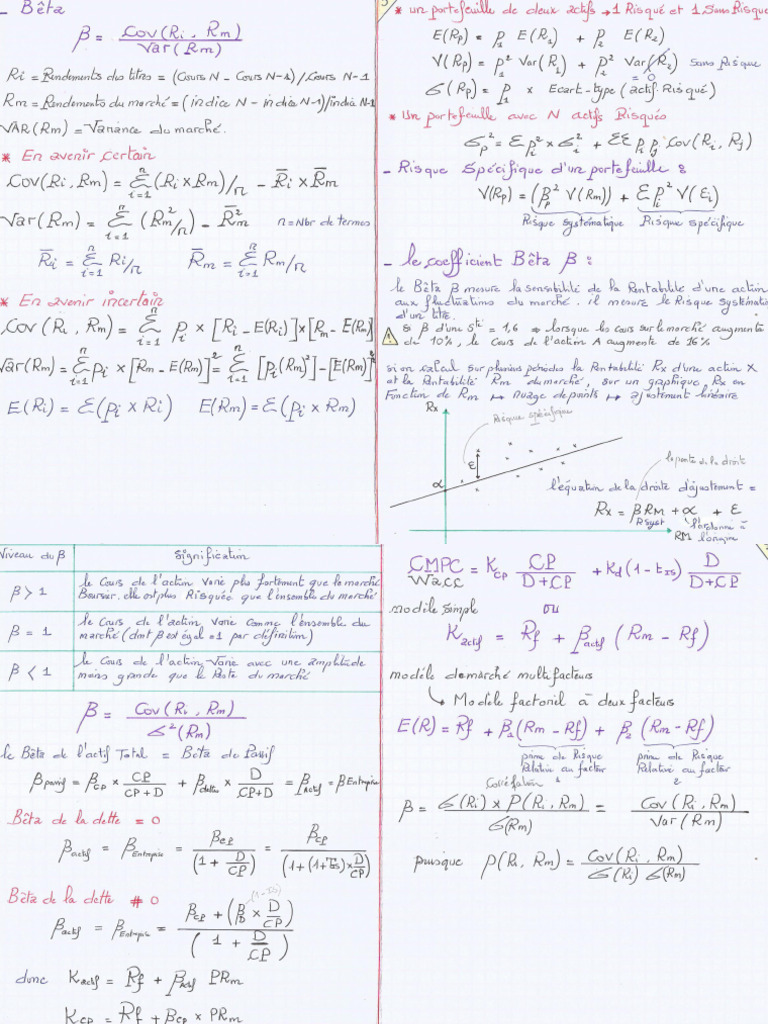 - Bêta
β = Cov(Ri, Rm) / Var(Rm)
Ri = Rendements des titres = (Cours N - Cours N-1) / Cours N-1
Rm = Rendements du marché = (indice N - indice N-1)/indice N-1
VAR(Rm) = Variance du marché.
* En avenir certain
Cov(Ri, Rm) = Σ(i=1→n) (Ri × Rm)/n - R̄i × R̄m
Var(Rm) = Σ(i=1→n) (Rm²/n) - R̄m² n = Nbr de termes
R̄i = Σ(i=1→n) Ri/n R̄m = Σ(i=1→n) Rm/n
* En avenir incertain
Cov(Ri, Rm) = Σ(i=1→n) pi × [Ri - E(Ri)] × [Rm - E(Rm)]
Var(Rm) = Σ(i=1→n) pi × [Rm - E(Rm)]² = Σ(i=1→n) [pi(Rm)²] - [E(Rm)]²
E(Ri) = Σ(pi × Ri) E(Rm) = Σ(pi × Rm)
5
* un portefeuille de deux actifs → 1 Risqué et 1 Sans Risque
E(Rp) = P1 E(R1) + P2 E(R2)
V(Rp) = P1² Var(R1) + P2² Var(R2) Sans Risque
= 0
σ(Rp) = P1 × Ecart-type (actif Risqué)
* Un portefeuille avec N actifs Risqués
σp² = Σpi² × σi² + ΣΣ pi pj Cov(Ri, Rj)
- Risque Spécifique d'un portefeuille :
V(Rp) = (βp² V(Rm)) + Σpi² V(εi)
Risque systématique Risque spécifique
- le coefficient Bêta β :
le Bêta β mesure la sensibilité de la Rentabilité d'une action
aux fluctuations du marché. il mesure le Risque systématiq
d'un titre.
si β d'une Sté = 1,6 ⇒ lorsque les cours sur le marché augmente
de 10%, le cours de l'action A augmente de 16%
si on calcul sur plusieurs périodes la Rentabilité Rx d'une action X
et la Rentabilité Rm du marché, sur un graphique Rx en
Fonction de Rm ↦ nuage de points ↦ ajustement linéaire
Rx
Risque spécifique
ε
α
la pente de la droite
l'équation de la droite d'ajustement =
Rx = β RM + α + ε
R syst
l'ordonnée à
l'origine
RM
Niveau du β Signification
β > 1 le Cours de l'action varie plus fortement que le marché
Boursier. elle est plus Risquée que l'ensemble du marché
β = 1 le Cours de l'action varie comme l'ensemble du
marché (dont β est égal = 1 par définition)
β < 1 le Cours de l'action varie avec une amplitude
moins grande que le Reste du marché
β = Cov(Ri, Rm) / σ²(Rm)
le Bêta de l'actif Total = Bêta de Passif
βpassif = βCP × CP/(CP+D) + βdette × D/(CP+D) = βActif = βEntreprise
Bêta de la dette = 0
βactif = βEntreprise = βCP / (1 + D/CP) = βCP / (1+(1+Tis)×D/CP)
Bêta de la dette ≠ 0
(1-IS)
βactif = βEntreprise = (βCP + (βD × D/CP)) / (1 + D/CP)
donc Kactif = Rf + βactif PRm
KCP = Rf + βCP × PRm
CMPC = KCP CP/(D+CP) + Kd(1-tIS) D/(D+CP)
Wacc
modèle simple ou
Kactif = Rf + βactif (Rm - Rf)
modèle de marché multifacteurs
↳ Modèle factoriel à deux facteurs
E(R) = Rf + β1(Rm - Rf) + β2 (Rm - Rf)
prime de Risque prime de Risque
Relative au factor Relative au facteur
1 2
Corrélation
β = σ(Ri) × ρ(Ri, Rm) / σ(Rm) = Cov(Ri, Rm) / Var(Rm)
puisque ρ(Ri, Rm) = Cov(Ri, Rm) / σ(Ri) σ(Rm)